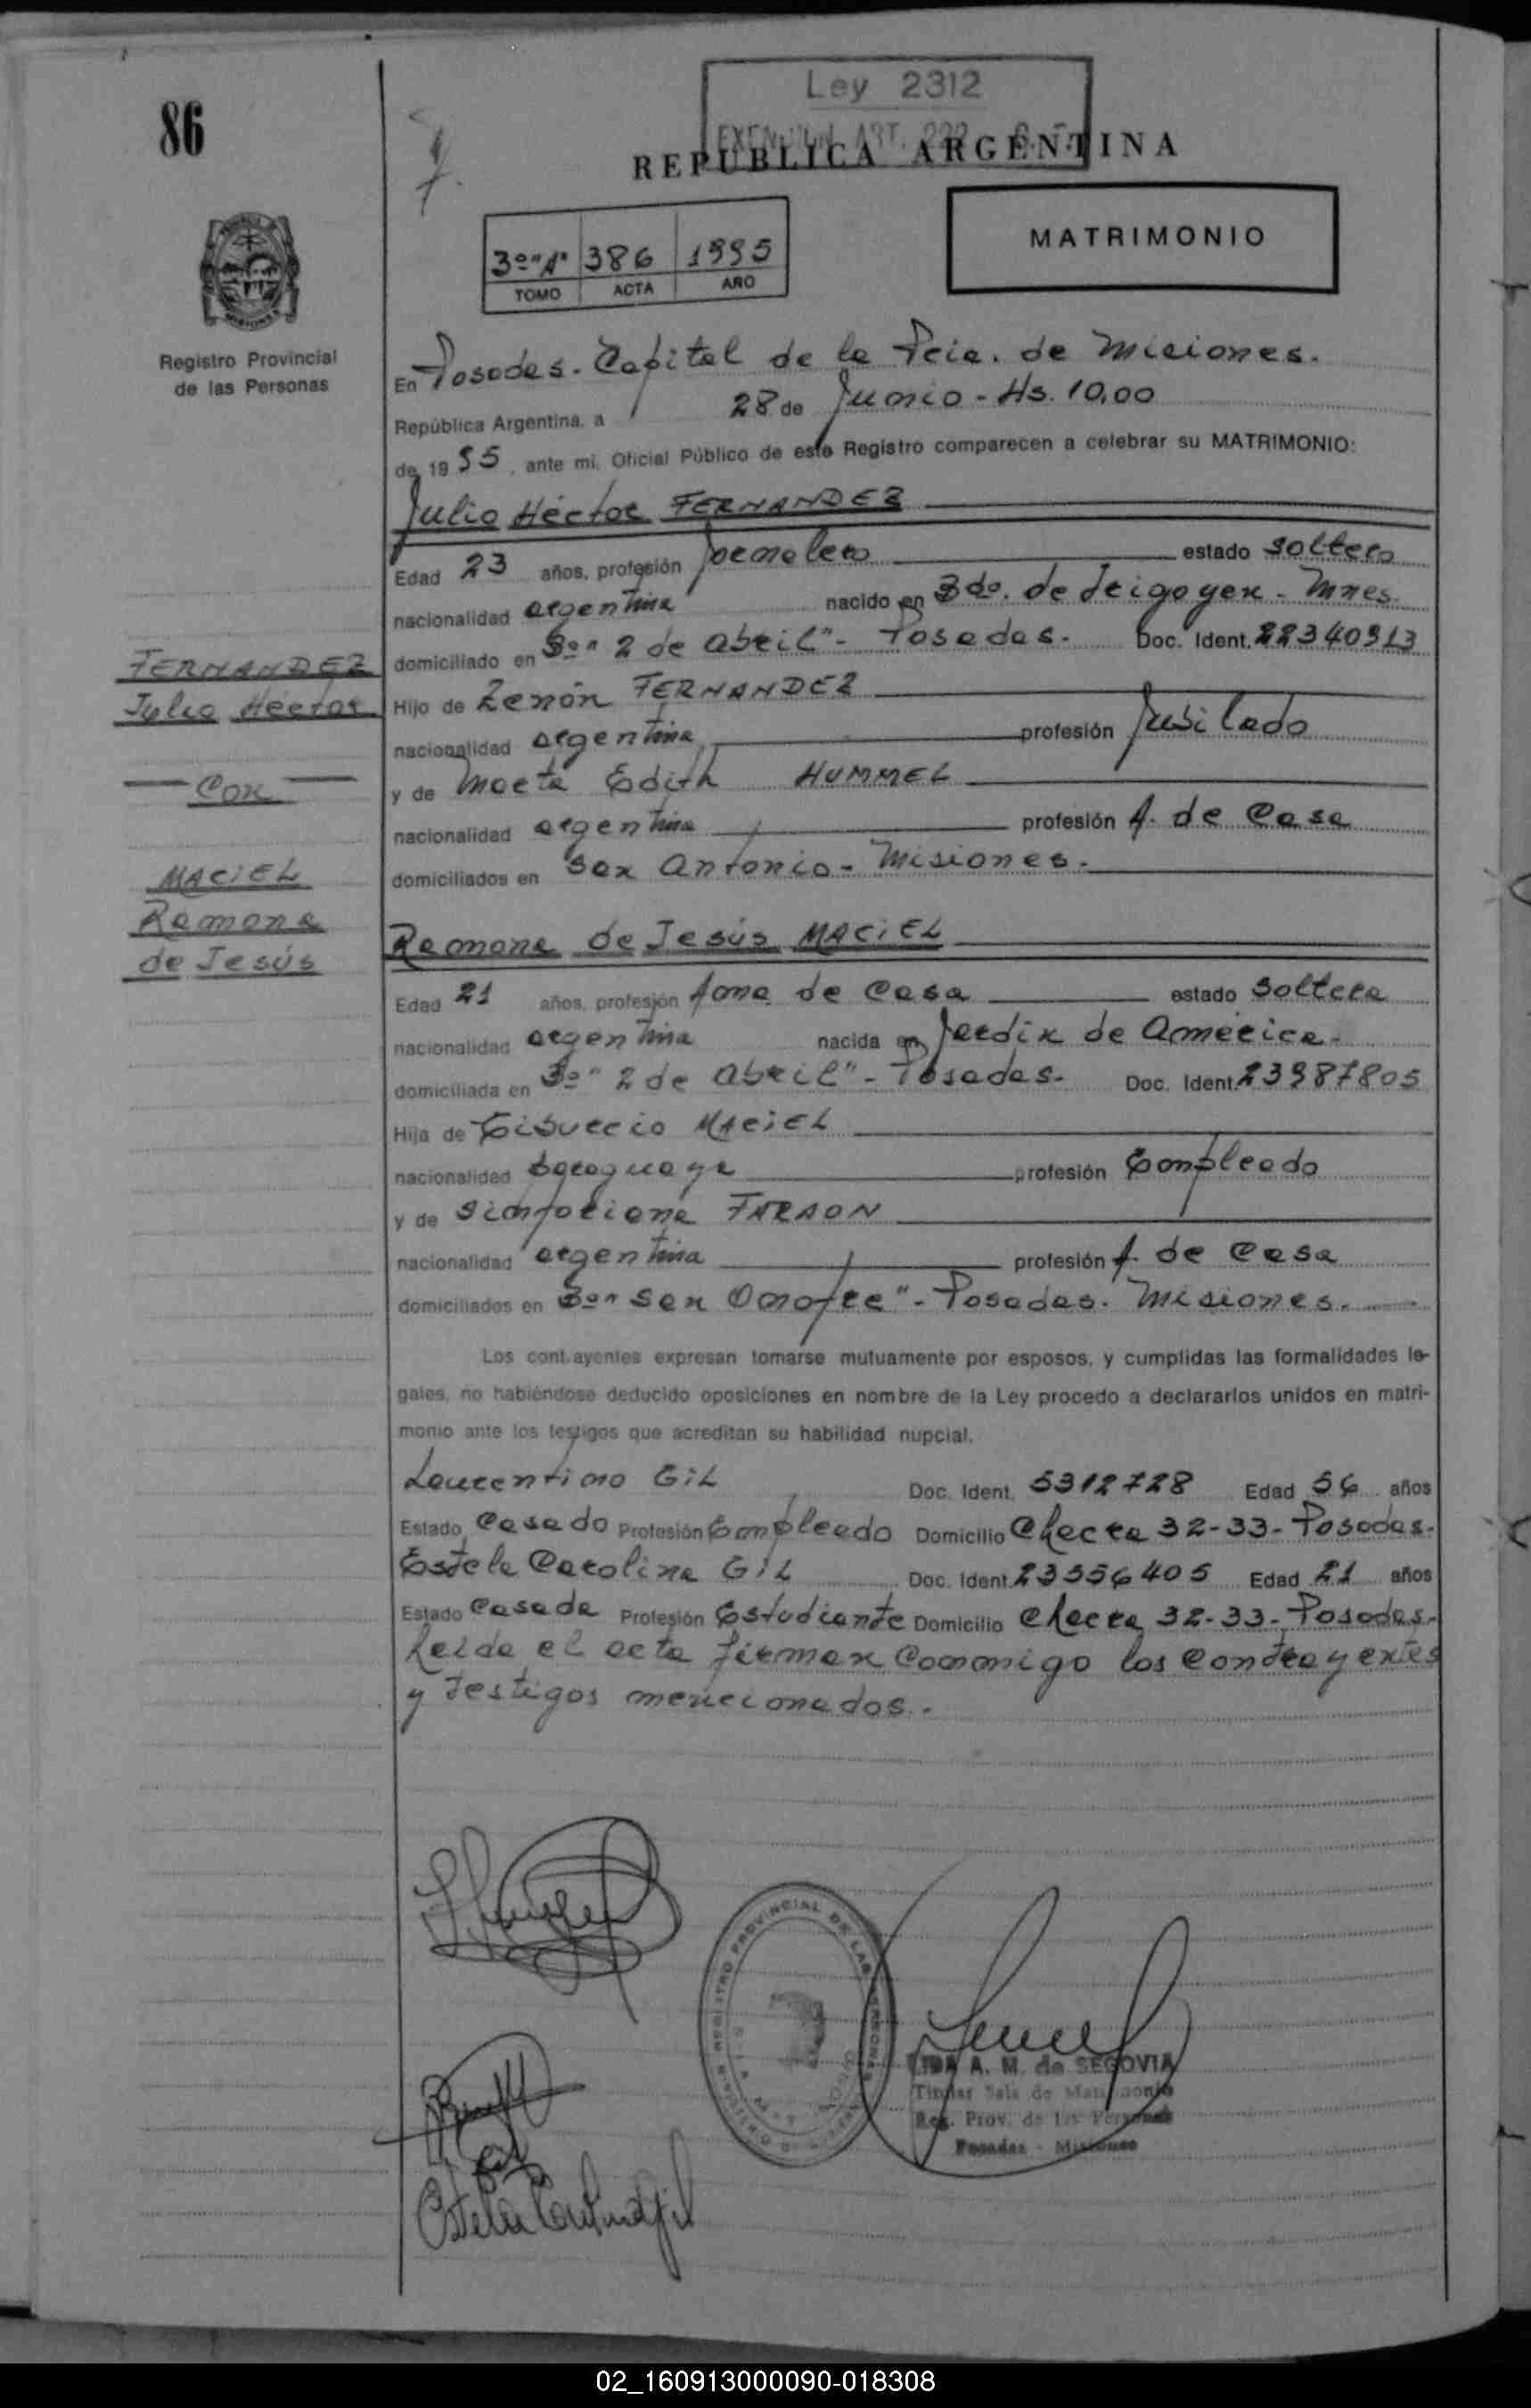 86
Ley 2312
REPUBLICA ARGENTINA
3º "A" 386 1995
TOMO ACTA AÑO
MATRIMONIO
Registro Provincial
de las Personas
En Posadas. Capital de la Pcia. de Misiones.
República Argentina, a 28 de Junio - Hs. 10,00
de 1995, ante mi, Oficial Público de este Registro comparecen a celebrar su MATRIMONIO:
Julio Héctor FERNANDEZ
Edad 23 años, profesión Jornalero estado soltero
nacionalidad argentina nacido en Bdo. de Irigoyen - Mnes.
domiciliado en Bº "2 de Abril" - Posadas. Doc. Ident. 22340913
Hijo de Zenón FERNANDEZ
nacionalidad argentina profesión Jubilado
y de Marta Edith HUMMEL
nacionalidad argentina profesión A. de Casa
domiciliados en San Antonio - Misiones.
FERNANDEZ
Julio Héctor
Con
MACIEL
Ramona
de Jesús
Ramona de Jesús MACIEL
Edad 21 años, profesión Ama de Casa estado Soltera
nacionalidad argentina nacida en Jardin de América.
domiciliada en Bº "2 de Abril" - Posadas. Doc. Ident. 23987805
Hija de Eiburcio MACIEL
nacionalidad paraguaya profesión Empleado
y de Sinforiana FARAON
nacionalidad argentina profesión A. de Casa
domiciliados en Bº "San Onofre" - Posadas. Misiones.
Los contrayentes expresan tomarse mutuamente por esposos, y cumplidas las formalidades le-
gales, no habiéndose deducido oposiciones en nombre de la Ley procedo a declararlos unidos en matri-
monio ante los testigos que acreditan su habilidad nupcial.
Laurentino GIL Doc. Ident. 5312728 Edad 56 años
Estado Casado Profesión Empleado Domicilio Chacra 32-33 - Posadas.
Estela Carolina GIL Doc. Ident. 23556405 Edad 21 años
Estado Casada Profesión Estudiante Domicilio Chacra 32-33 - Posadas.
Leida el acta firman conmigo los contrayentes
y testigos mencionados.
A. M. de SEGOVIA
Titular Sala de Matrimonio
Reg. Prov. de las Personas
Posadas - Misiones
02_160913000090-018308